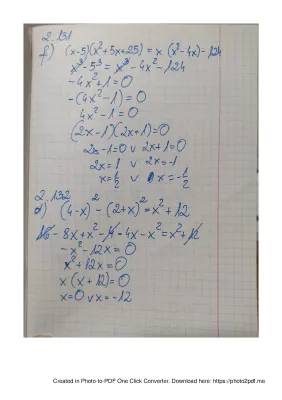 2.131
f) (x-5)(x²+5x+25)=x·(x²-4x)-124
x³-5³=x³-4x²-124
-4x²+1=0
-(4x²-1)=0
4x²-1=0
(2x-1)(2x+1)=0
2x-1=0 v 2x+1=0
2x=1 v 2x=-1
x=1/2 v x=-1/2
2.132
d) (4-x)²-(2+x)²=x²+12
16-8x+x²-4-4x-x²=x²+12
-x²-12x=0
x²+12x=0
x(x+12)=0
x=0 v x=-12
Created in Photo to PDF One Click Converter. Download here: https://photo2pdf.me